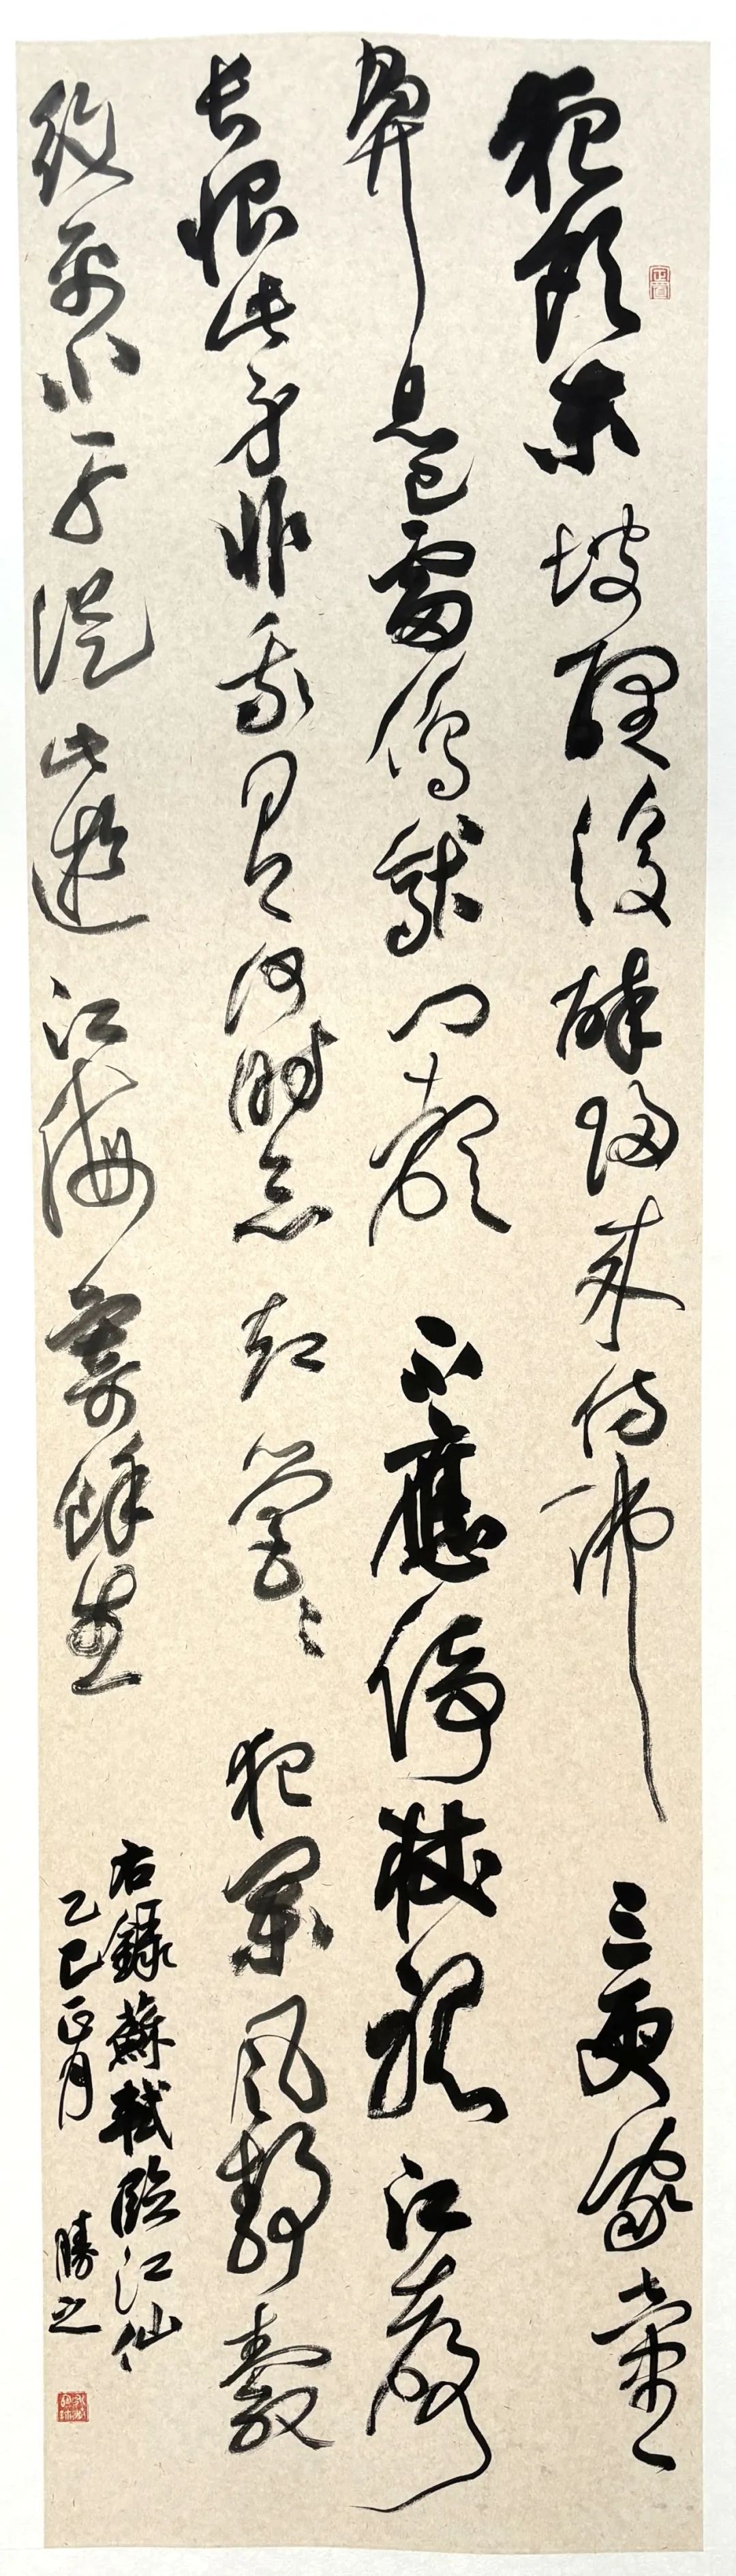 夜飲東坡醒復醉歸來仿佛三更家童
鼻息已雷鳴敲門都不應倚杖聽江聲
長恨此身非我有何時忘却營營夜闌風靜縠
紋平小舟從此逝江海寄餘生
右錄蘇軾臨江仙
乙巳正月 勝之